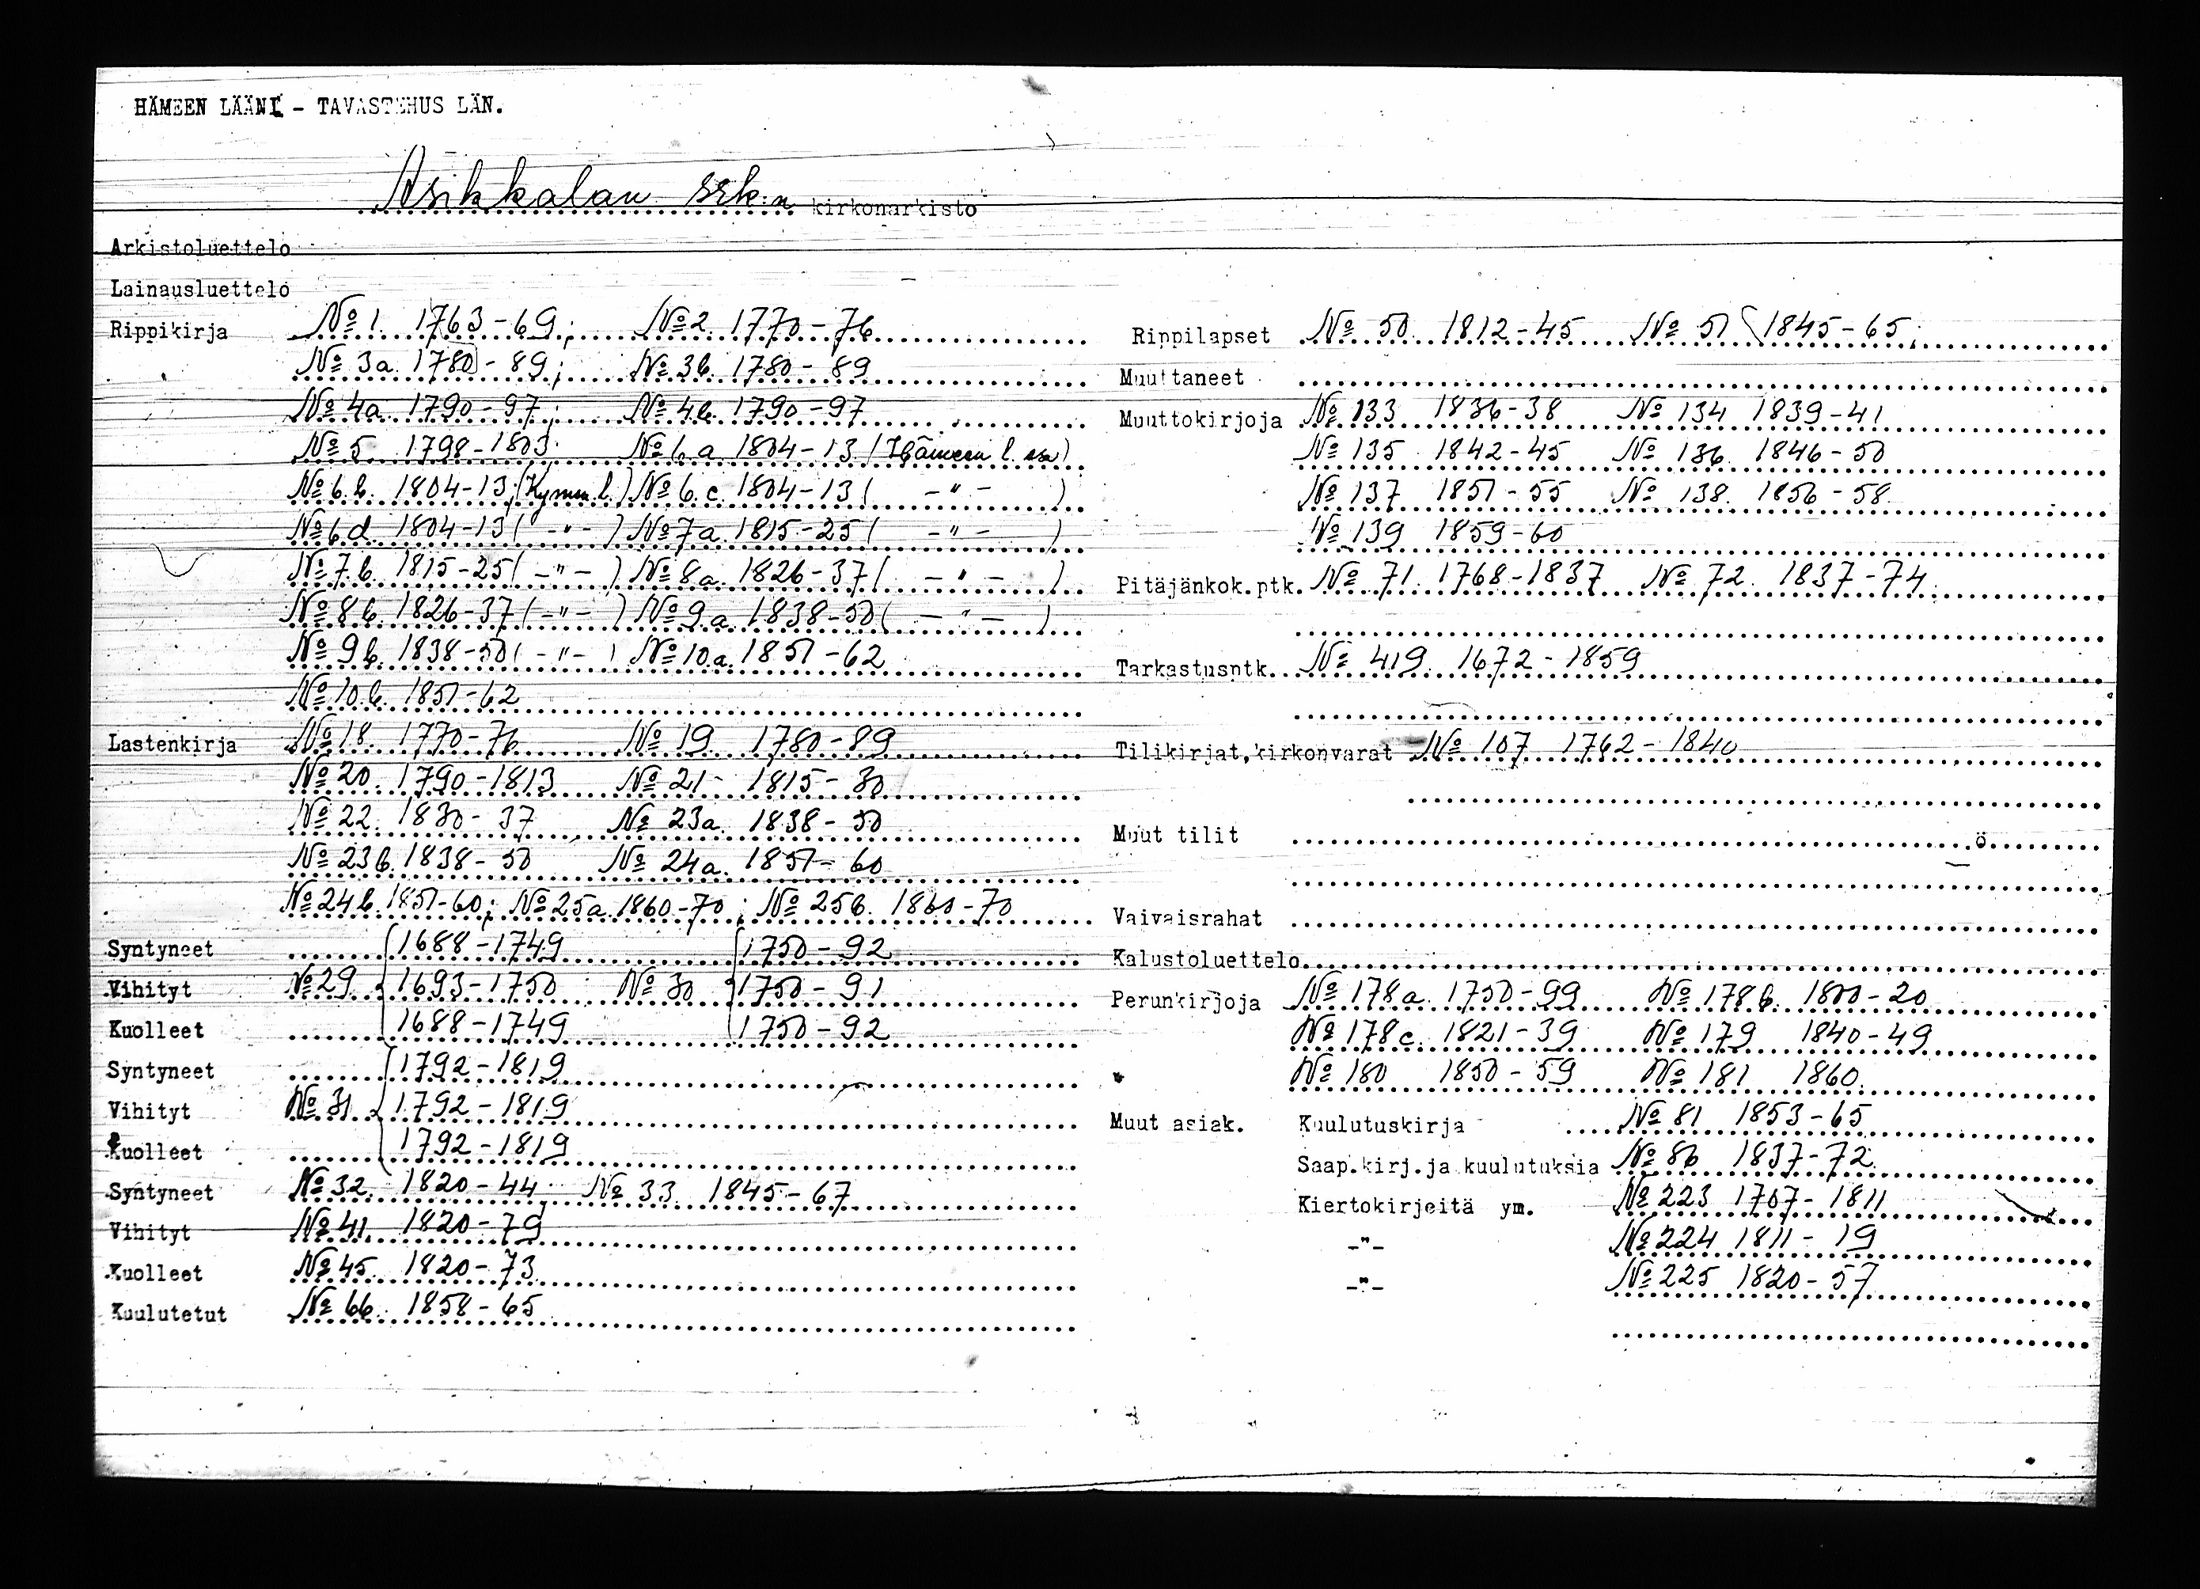 HÄMEEN LÄÄNI - TAVASTEHUS LÄN.
Asikkalan srk:n kirkonarkisto
Arkistoluettelo
Lainausluettelo
Rippikirja № 1. 1763-69; № 2. 1770-76
№ 3a. 1780-89; № 3b. 1780-89
№ 4a. 1790-97; № 4b. 1790-97
№ 5. 1798-1803. № 6.a 1804-13 (Hämeen l. osa)
№ 6.b. 1804-13 (Kymen l.) № 6.c. 1804-13 ( -"- )
№ 6d. 1804-13 ( -"- ) № 7a. 1815-25 ( -"- )
№ 7.b. 1815-25 ( -"- ) № 8a. 1826-37 ( -"- )
№ 8b. 1826-37 ( -"- ) № 9.a. 1838-50 ( -"- )
№ 9b. 1838-50 ( -"- ) № 10.a. 1851-62
№ 10.b. 1851-62
Lastenkirja № 18. 1770-76 № 19. 1780-89
№ 20. 1790-1813 № 21 1815-30
№ 22. 1830-37 № 23a. 1838-50
№ 23b. 1838-50 № 24a. 1851-60
№ 24b. 1851-60; № 25a. 1860-70; № 25b. 1860-70
Syntyneet 1688-1749 1750-92
Vihityt № 29 1693-1750 № 30 1750-91
Kuolleet 1688-1749 1750-92
Syntyneet 1792-1819
Vihityt № 31 1792-1819
Kuolleet 1792-1819
Syntyneet № 32. 1820-44 № 33 1845-67
Vihityt № 41. 1820-79
Kuolleet № 45. 1820-73
Kuulutetut № 66. 1858-65
Rippilapset № 50. 1812-45 № 51 1845-65;
Muuttaneet
Muuttokirjoja № 133 1836-38 № 134 1839-41
№ 135 1842-45 № 136. 1846-50
№ 137 1851-55 № 138. 1856-58
№ 139 1859-60
Pitäjänkok.ptk. № 71. 1768-1837 № 72. 1837-74.
Tarkastusptk. № 419. 1672-1859
Tilikirjat, kirkonvarat № 107 1762-1840
Muut tilit ö
Vaivaisrahat
Kalustoluettelo
Perunkirjoja № 178a. 1750-99 № 178b. 1800-20
№ 178c. 1821-39 № 179 1840-49
№ 180 1850-59 № 181 1860.
Muut asiak. Kuulutuskirja № 81 1853-65
Saap.kirj.ja kuulutuksia № 86 1837-72.
Kiertokirjeitä ym. № 223 1707-1811
-"- № 224 1811-19
-"- № 225 1820-57